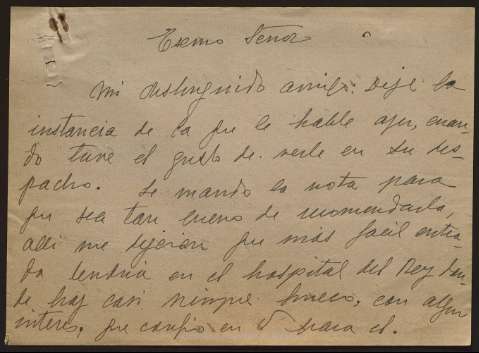 Exmo Señor
Mi distinguido amigo: Dejé la
instancia de la que le hablé ayer, cuan-
do tuve el gusto de verle en su des-
pacho. Le mando la nota para
que sea tan bueno de recomendarla,
alli me dijeron que más facil entra-
da tendria en el hospital del Rey don-
de hay casi siempre hueco, con algun
interes, que confio en V para el.